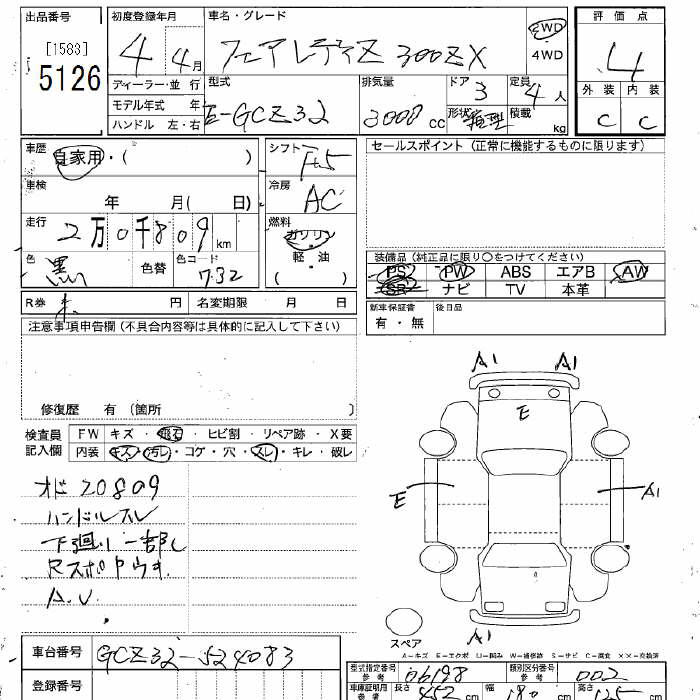 出品番号
[1583]
5126
初度登録年月
4 4月
車名・グレード
フェアレディZ 300ZX
2WD
4WD
評価点
4
外装 内装
C C
ディーラー・並行
モデル年式 年
ハンドル 左・右
型式
E-GCZ32
排気量
3000 cc
ドア
3
形状
定員
4人
積載
kg
車歴
自家用・( )
車検
年 月( 日)
走行
2万0千809 km
色
黒
色替
色コード
732
シフト
F5
冷房
AC
燃料
ガソリン
軽・油
( )
セールスポイント(正常に機能するものに限ります)
装備品(純正品に限り○をつけてください)
PS PW ABS エアB AW
SR ナビ TV 本革
R券 未 円 名変期限 月 日
新車保証書
有・無
後日品
注意事項申告欄(不具合内容等は具体的に記入して下さい)
修復歴 有(箇所 )
検査員
記入欄
FW キズ・飛石・ヒビ割・リペア跡・X要
内装 キズ・汚レ・コゲ・穴・スレ・キレ・破レ
オド20809
ハンドルスレ
下廻り一部し
Rスポ
A.U.
A1 A1
E
E
A1
A1
スペア
A-キズ E-エクボ U-凹み W-補修跡 S-サビ C-腐食 XX-交換済
車台番号
GCZ32-524083
登録番号
型式指定番号
参考
06198
類別区分番号
参考
002
車庫証明用
参考
長さ 452 cm 幅 180 cm 高さ 125 cm